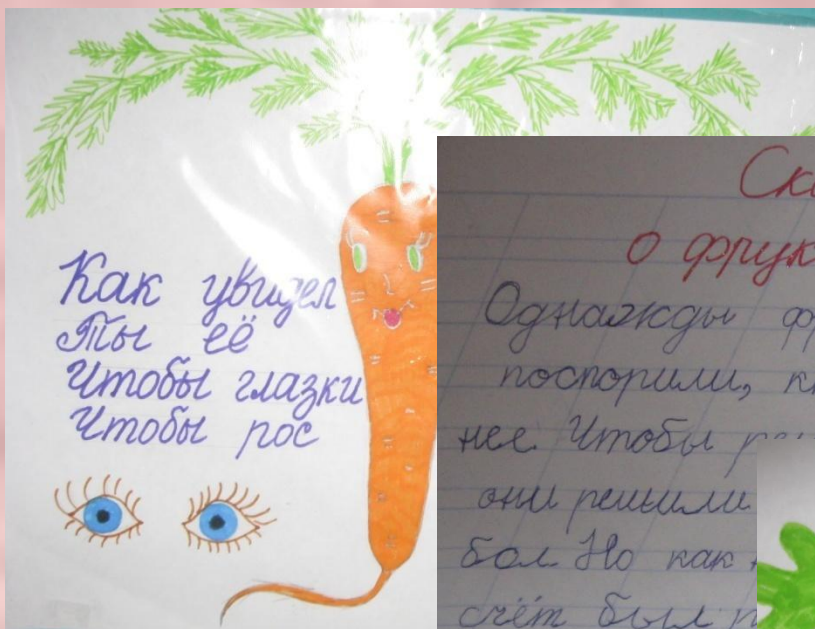 Как увидел
Ты её
Чтобы глазки
Чтобы рос
о
Однажды
поспорили,
нее. Чтобы
они решили
бол. Но как
счёт был